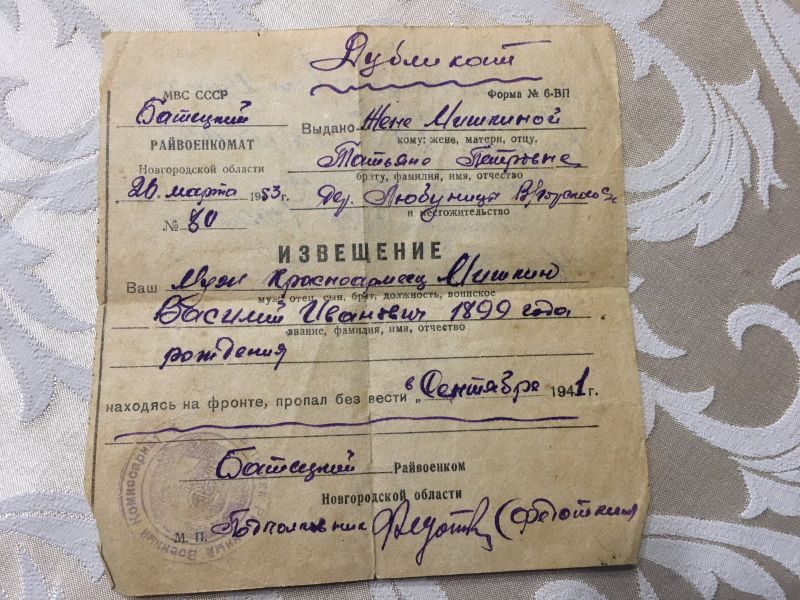 Дубликат
МВС СССР
Форма № 6-ВП
Батецкий
Выдано Жене Мишкиной
РАЙВОЕНКОМАТ
кому: жене, матери, отцу,
Новгородской области
Татьяне Петровне
брату, фамилия, имя, отчество
20 марта 1953г.
дер. Любуницы
и местожительство
№ 80
ИЗВЕЩЕНИЕ
Ваш Муж красноармеец Мишкин
муж, отец, сын, брат, должность, воинское
Василий Иванович 1899 года
звание, фамилия, имя, отчество
рождения
находясь на фронте, пропал без вести „в Сентябре 1941г.
Батецкий Райвоенком
Новгородской области
М. П. Подполковник